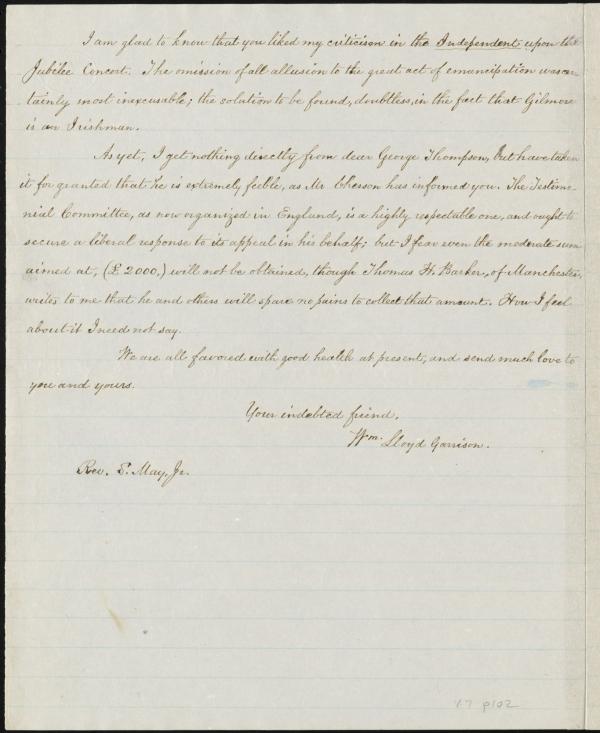 I am glad to know that you liked my criticism in the Independent upon the
Jubilee Concert. The omission of all allusion to the great act of emancipation was cer-
tainly most inexcusable; the solution to be found, doubtless, in the fact that Gilmore
is an Irishman.
As yet, I get nothing directly from dear George Thompson, but have taken
it for granted that he is extremely feeble, as Mr. Chesson has informed you. The Testimo-
nial Committee, as now organized in England, is a highly respectable one, and ought to
secure a liberal response to its appeal in his behalf; but I fear even the moderate sum
aimed at, (£2000,) will not be obtained, though Thomas H. Barker, of Manchester,
writes to me that he and others will spare no pains to collect that amount. How I feel
about it I need not say.
We are all favored with good health at present, and send much love to
you and yours.
Your indebted friend,
Wm. Lloyd Garrison.
Rev. S. May, Jr.
V.7 p102